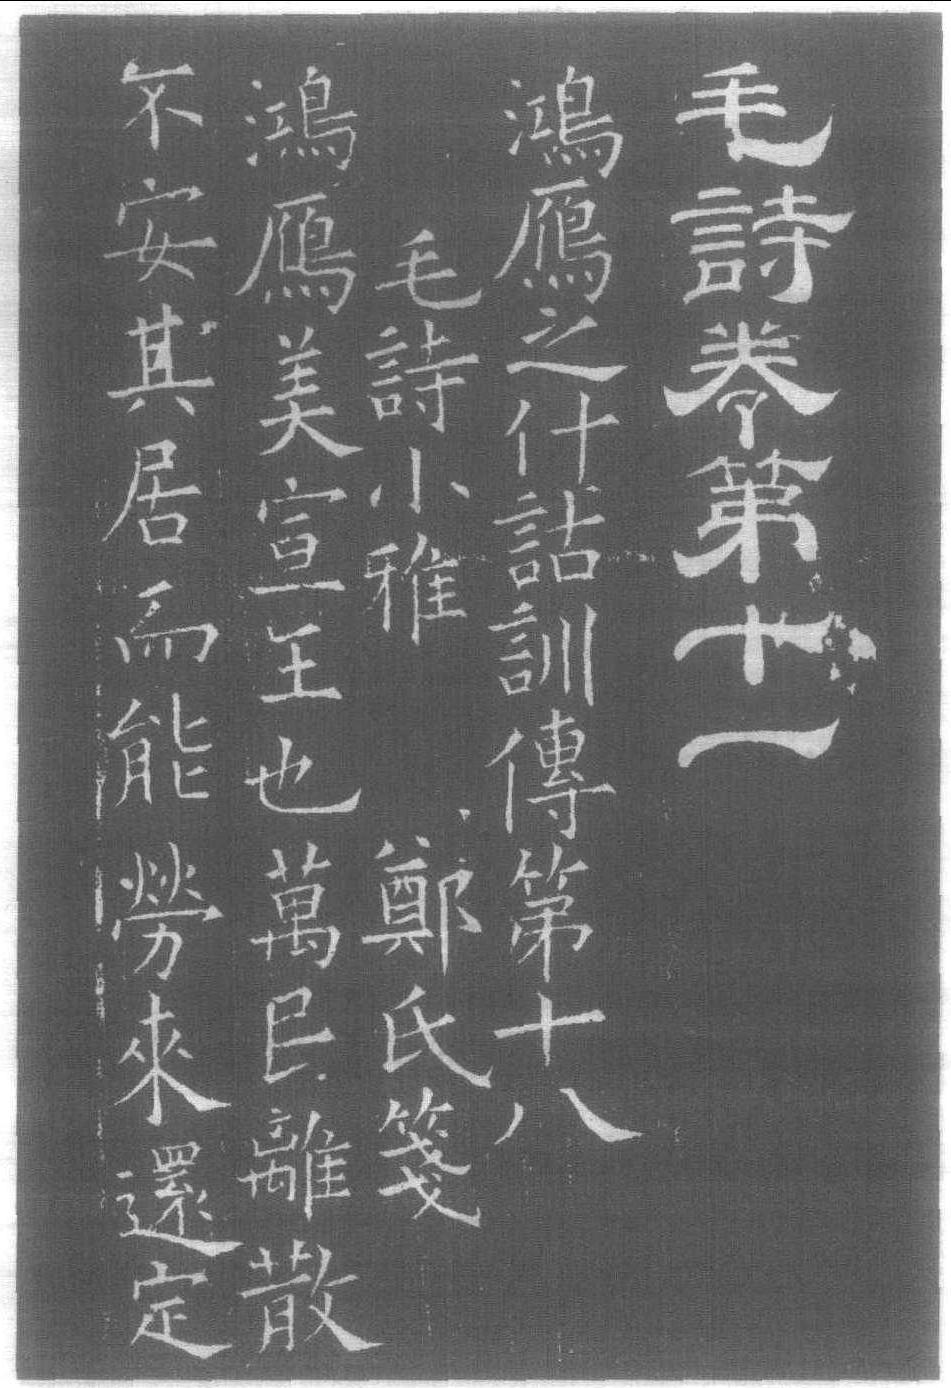 毛詩卷第十一
鴻鴈之什詁訓傳第十八
毛詩小雅 鄭氏箋
鴻鴈美宣王也萬民離散
不安其居而能勞來還定